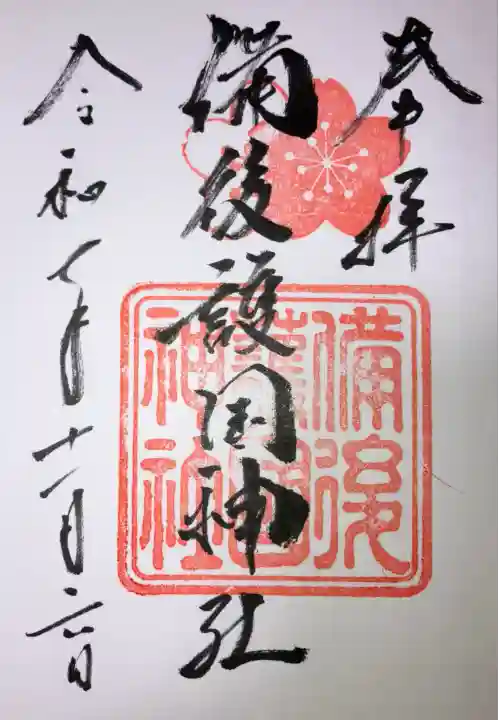 奉拝
備後護国神社
備後
護國
神社
令和七年十一月六日